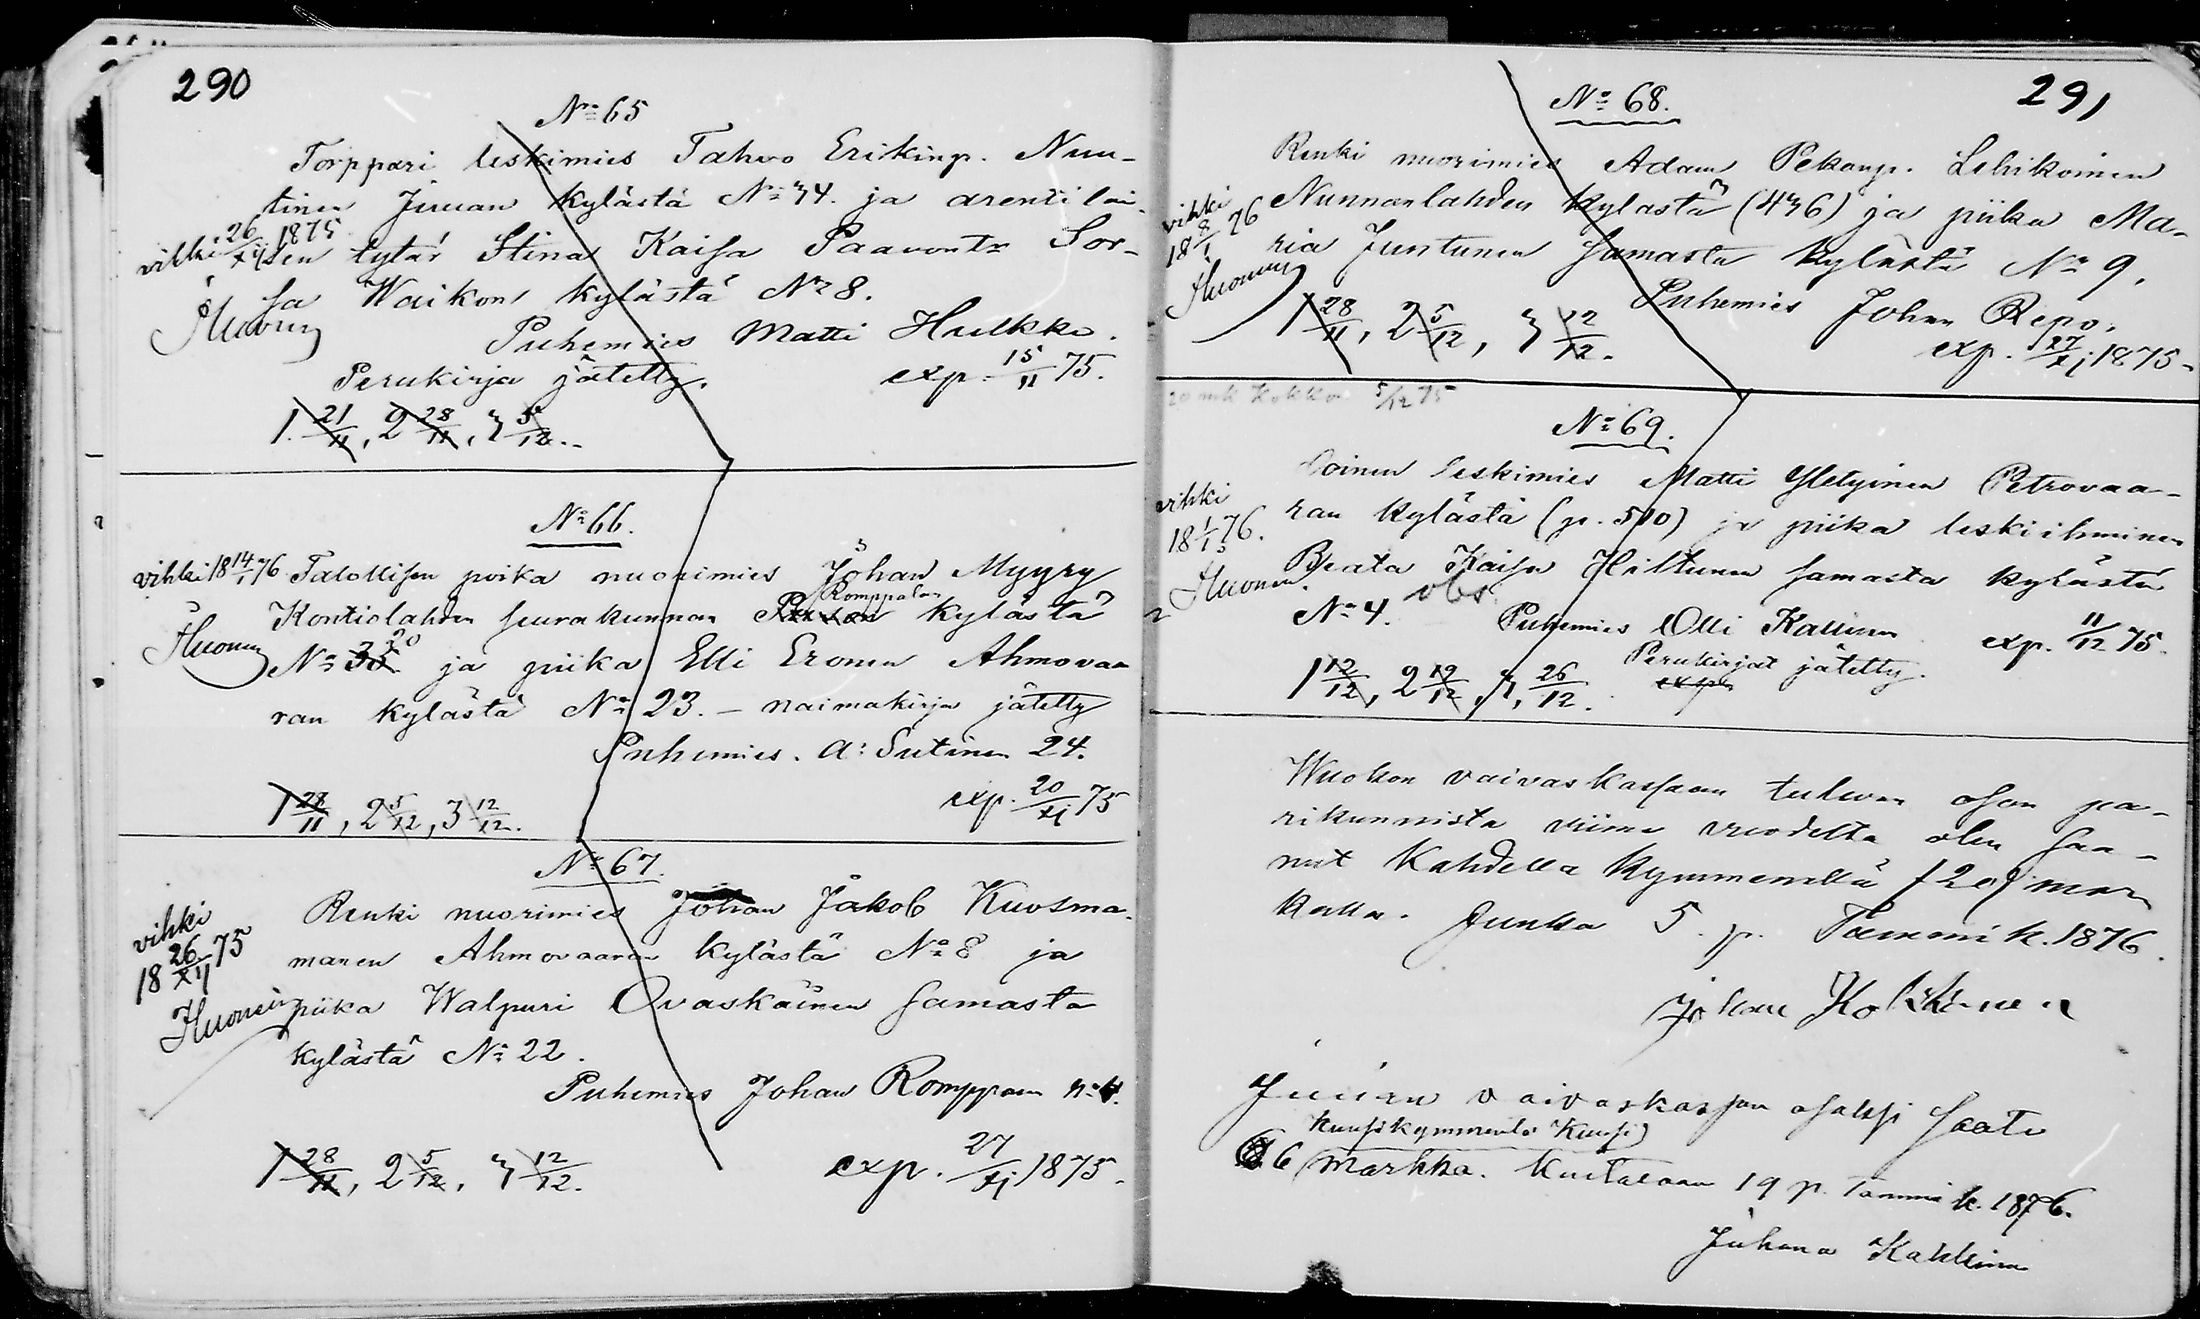 290
No 65
Torppari leskimies Tahvo Erikinp. Nuu-
tinen Juuan kylästä No 34. ja arentilai-
vihki 26/XII 1875
sen tytär Stina Kaisa Paavont. Sor-
sa Waikon kylästä No 8.
Huonen
Puhemies Matti Hulkko.
Perukirja jätetty. exp. 15/11 75.
1. 21/11, 2 28/11, 3 5/12.
No 66.
vihki 18 14/1 76 Talollisen poika nuorimies Johan Myyry
Romppalan
Kontiolahden seurakunnan kylästä
Huonen
No 20 ja piika Elli Eronen Ahmovaa
ran kylästä No 23. – naimakirja jätetty
Puhemies. A: Sutinen 24.
exp. 20/XI 75
1 28/11, 2 5/12, 3 12/12.
No 67.
vihki
18 26/XII 75
Huonen
Renki nuorimies Johan Jakob Kuosma-
manen Ahmovaaran kylästä No 8 ja
piika Walpuri Ovaskainen samasta
kylästä No 22.
Puhemies Johan Romppanen No 4.
1 28/11, 2 5/12, 3 12/12. exp. 27/XI 1875.
291
No 68.
Renki nuorimies Adam Pekanp. Lehikoinen
vihki
18 8/1 76
Huonen
Nunnanlahden kylästä (436) ja piika Ma-
ria Juntunen samasta kylästä No 9.
Puhemies Johan Repo.
1 28/11, 2 5/12, 3 12/12. exp. 27/XI 1875.
20 mk Kokko 5/12 75
No 69.
Loinen leskimies Matti Yletyinen Petrovaa-
vihki
18 1/1 76.
Huonen.
ran kylästä (p. 510) ja piika leskiihminen
Beata Kaisa Hiltunen samasta kylästä
No 4. obs Puhemies Olli Kallinen exp. 11/12 75.
Perukirjat jätetty.
exp.
1 12/12, 2 19/12, 3, 26/12.
Wuokon vaivaskassaan tulevan osan pa-
rikunnista viime vuodelta olen saa-
nut kahdella kymmenellä (20) mar
kalla. Junka 5. p. Tammik. 1876.
Johan Kokkonen
Juuan vaivaskassan osaksi saatu
Kuusikymmentä Kuusi
66 markka. Kuitataan 19 p. Tammik. 1876.
Juhana Kakkinen